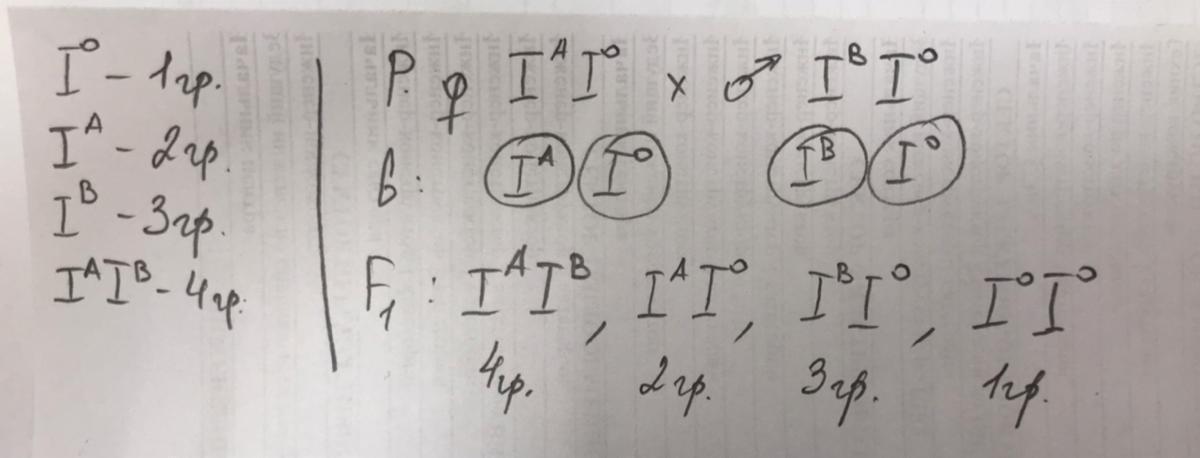 I⁰ – 1гр.
Iᴬ – 2гр.
Iᴮ – 3гр.
IᴬIᴮ – 4гр.
P. ♀ IᴬI⁰ × ♂ IᴮI⁰
G: Iᴬ I⁰ Iᴮ I⁰
F₁: IᴬIᴮ, IᴬI⁰, IᴮI⁰, I⁰I⁰
4гр. 2гр. 3гр. 1гр.